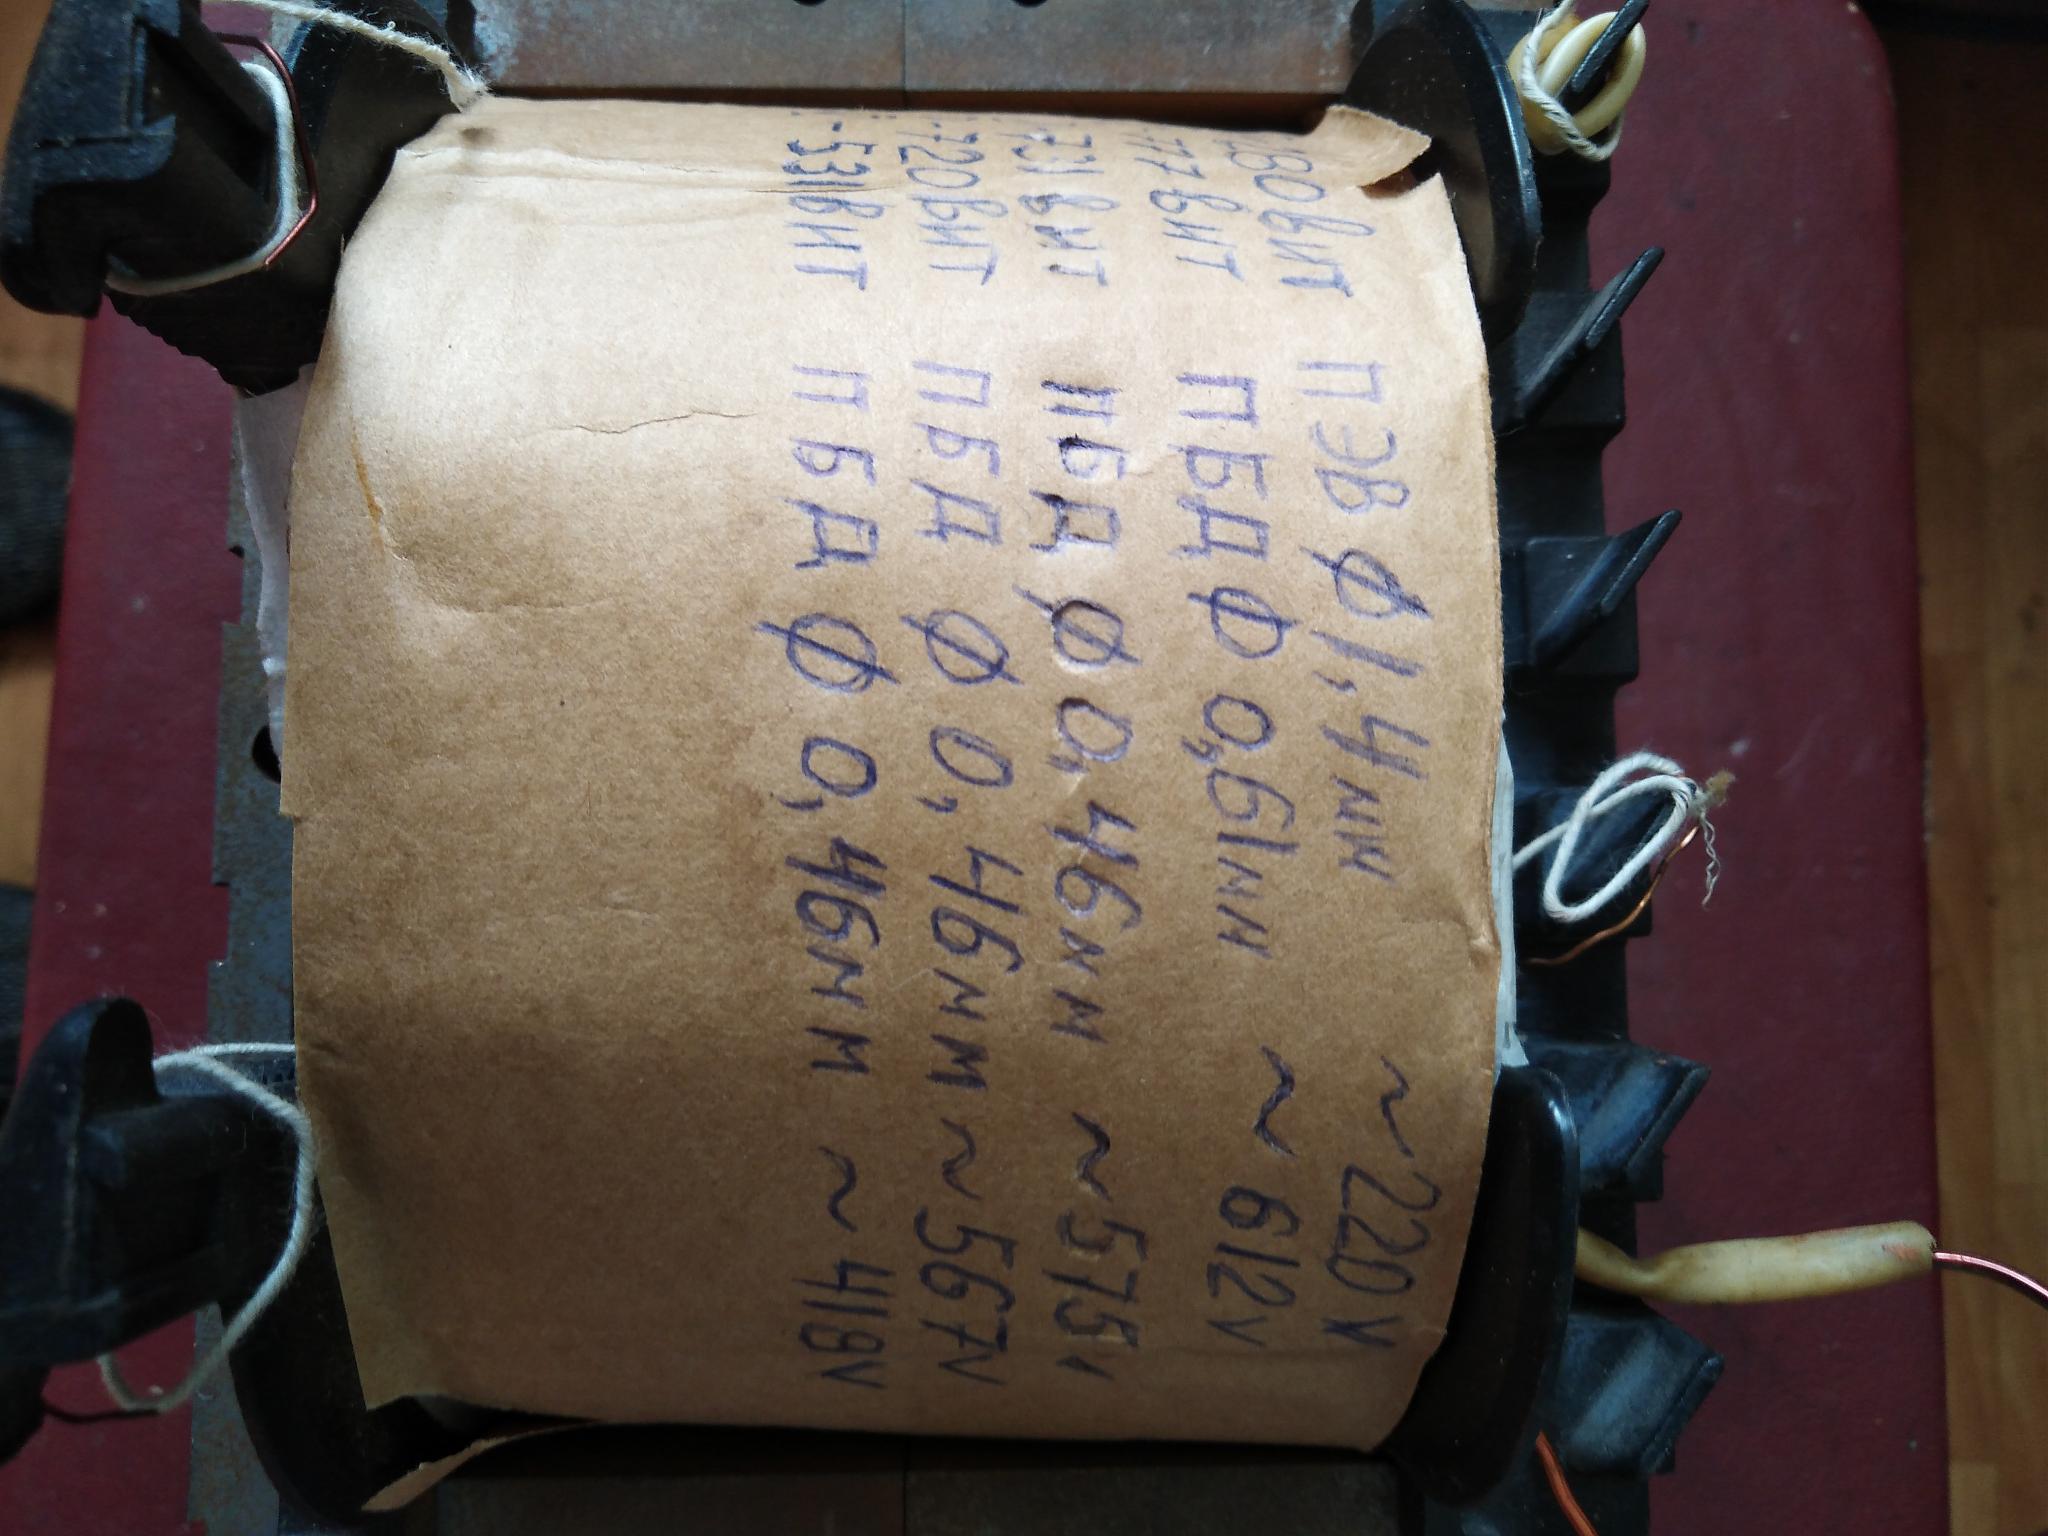 280вит ПЭВ Ø 1,4мм ~220V
777вит ПБД Ø 0,61мм ~612V
731вит ПБД Ø 0,46мм ~575V
-720вит ПБД Ø 0,46мм ~567V
-531вит ПБД Ø 0,46мм ~418V